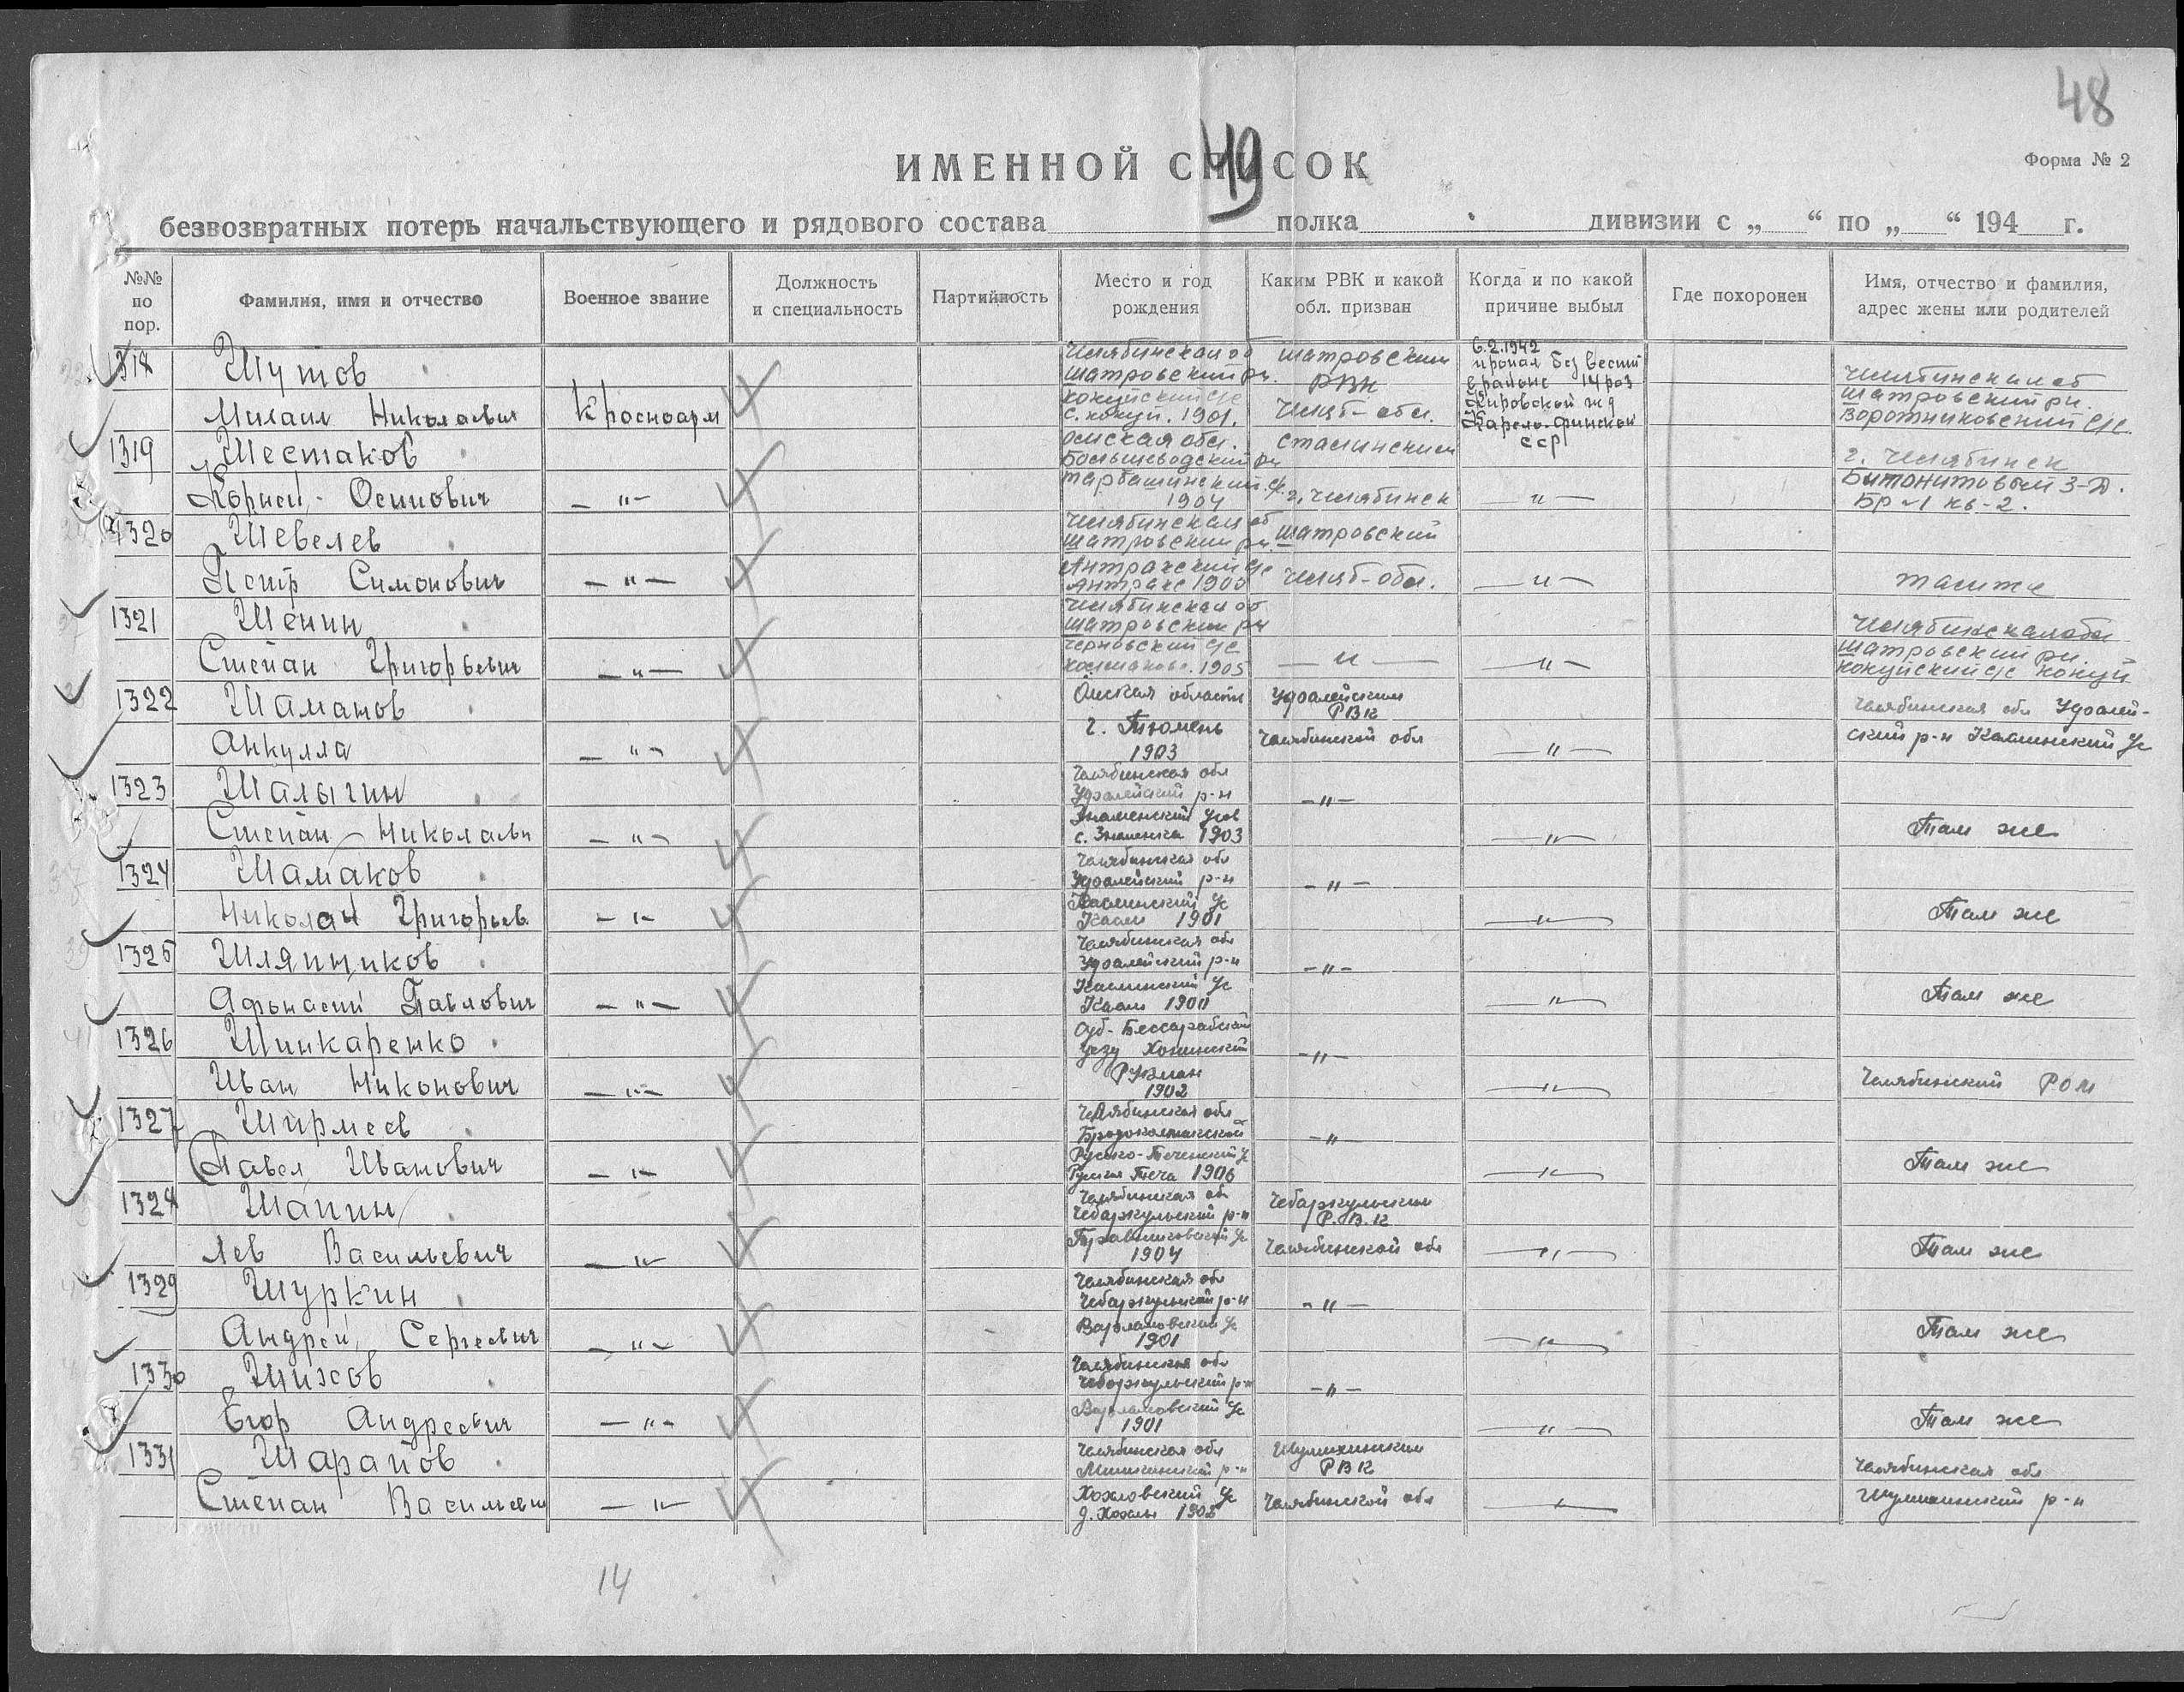 48
49
ИМЕННОЙ СПИСОК
Форма № 2
безвозвратных потерь начальствующего и рядового состава полка дивизии с „ “ по „ “ 194 г.
№№ по пор.
Фамилия, имя и отчество
Военное звание
Должность и специальность
Партийность
Место и год рождения
Каким РВК и какой обл. призван
Когда и по какой причине выбыл
Где похоронен
Имя, отчество и фамилия, адрес жены или родителей
1318 Шутов Челябинская об Шатровским 6.2.1942
Шатровский рн. РВК пропал без вести
Михаил Николаевич Красноарм Кокуйский с/с Челяб-обл. в районе 14 раз Челябинская об
с. Кокуй. 1901. Кировской жд Шатровский рн.
Карело-финской ССР Воротниковский с/с.
1319 Шестаков Омская обл. Сталинским г. Челябинск
Корней Осипович — " — 1904 г. Челябинск — " — Битонитовый 3-д.
Бр №1 кв-2.
1320 Шевелев Челябинская об Шатровский
Шатровский рн.
Петр Симонович — " — Антракский с/с Челяб-обл. — " —
Антракс 1900
1321 Шенин Челябинская об
Шатровский рн Челябинская обл
Степан Григорьевич — " — 1905 — " — — " — Шатровский рн.
Кокуйский с/с Кокуй
1322 Шаманов Омская область РВК Челябинская обл
г. Тюмень
Анкулла — " — 1903 Челябинской обл — " — ский р-н Каслинский с/с
1323 Шалыгин Челябинская обл — " —
Степан Николаеви — " — Знаменский — " — Там же
с. Знаменка 1903
1324 Шамаков Челябинская обл — " —
Николай Григорьев — " — 1901 — " — Там же
1325 Шляпников Челябинская обл — " —
Афонасий Павлович — " — — " — Там же
1326 Шинкаренко Бессарабской — " —
Уезд Хотинский
Иван Никонович — " — 1902 — " — Челябинский РОМ
1327 Ширмеев Челябинская обл — " —
Павел Иванович — " — Русско-Теченский с/с — " — Там же
Русская Теча 1906
1328 Шапин Челябинская об Чебаркульским
Чебаркульский р-н Р.В.К
Лев Васильевич — " — 1904 Челябинской обл — " — Там же
1329 Шуркин Челябинская обл — " —
Чебаркульский р-н
Андрей Сергеевич — " — Варламовский с/с — " — Там же
1901
1330 Шихов Челябинская обл — " —
Чебаркульский р-н
Егор Андреевич — " — Варламовский с/с — " — Там же
1901
1331 Шарапов Челябинская обл Шумихинским
Мишкинский р-н РВК Челябинская обл
Степан Васильеви — " — Хохловский с/с Челябинской обл — " — Шумихинский р-н
д. Хохлы
14